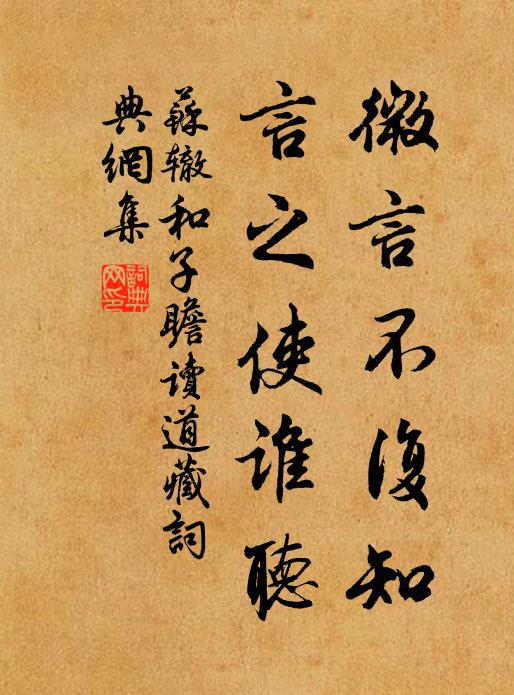 微言不復知
言之使誰聽
蘇辙和子瞻讀道藏詞
典網集
詞典网印